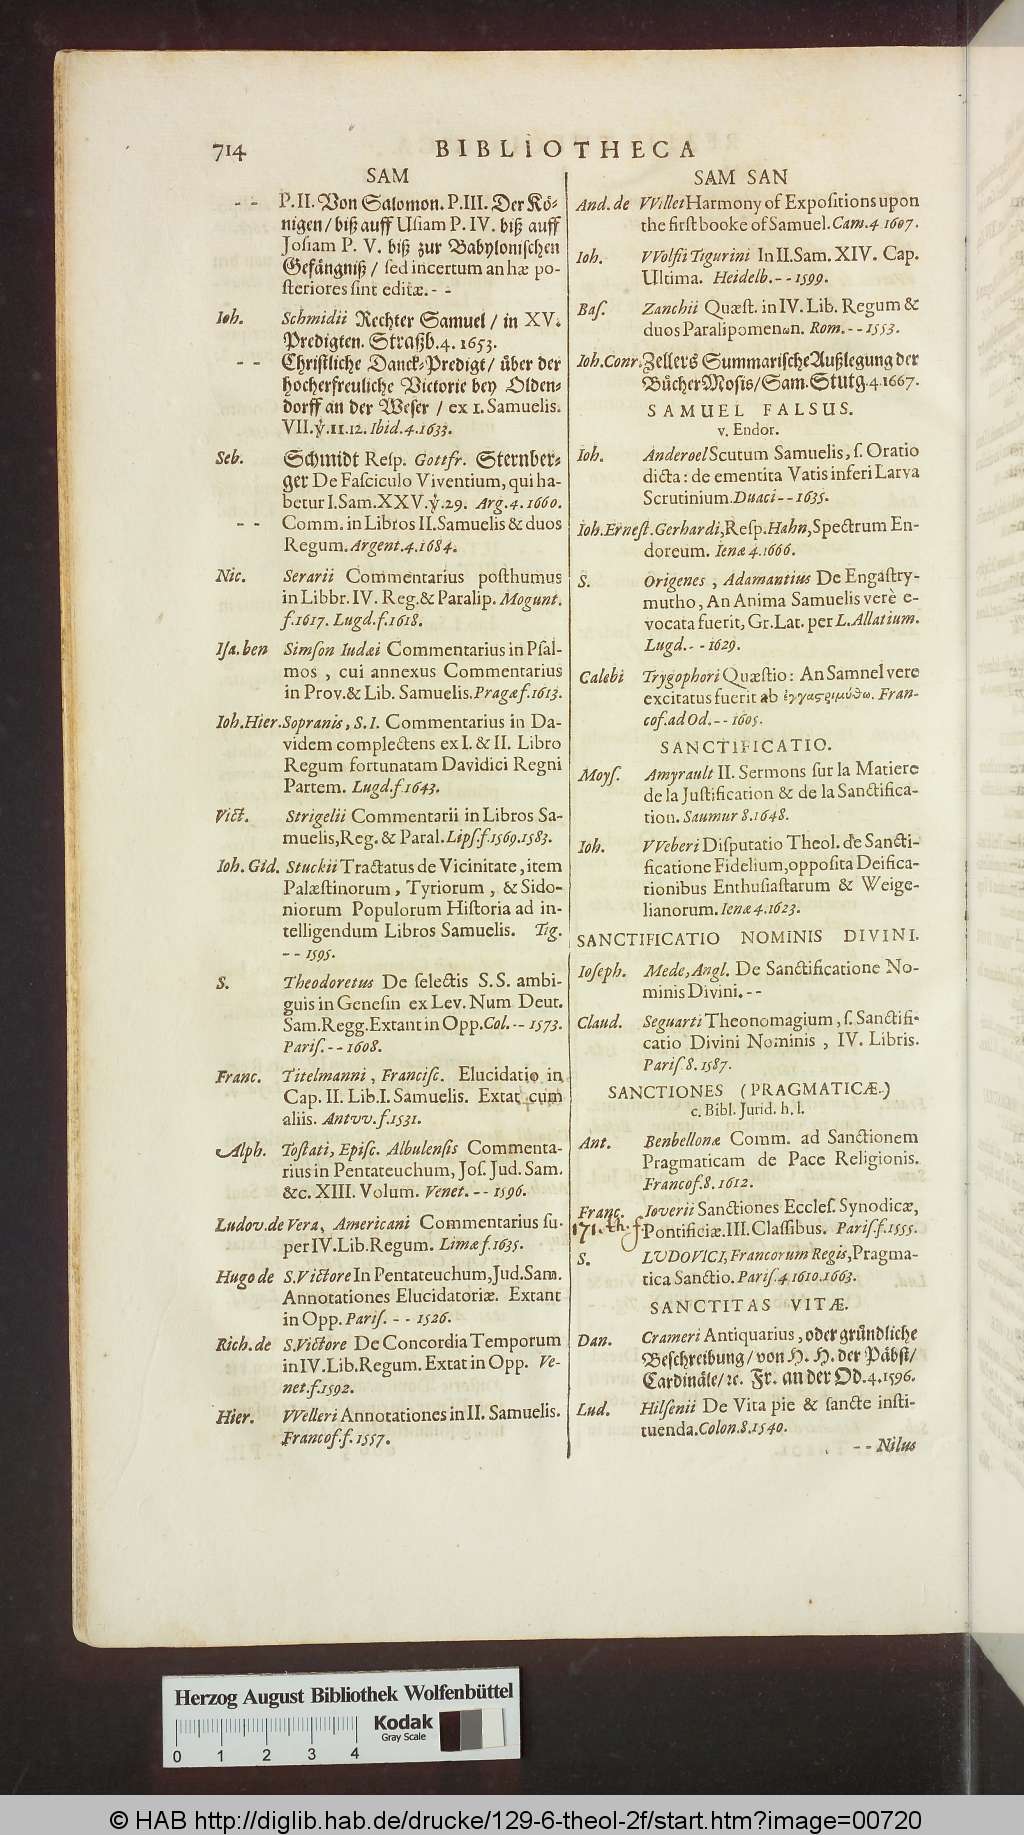 714
BIBLIOTHECA
SAM
- - P. II. Von Salomon. P. III. Der Kö-
nigen / biß auff Usiam P. IV. biß auff
Josiam P. V. biß zur Babylonischen
Gefängniß / sed incertum an hæ po-
steriores sint editæ. - -
Ioh. Schmidii Rechter Samuel / in XV.
Predigten. Straßb. 4. 1653.
- - Christliche Danck-Predigt / über der
hocherfreuliche Victorie bey Olden-
dorff an der Weser / ex 1. Samuelis.
VII. ꝟ. 11. 12. Ibid. 4. 1633.
Seb. Schmidt Resp. Gottfr. Sternber-
ger De Fasciculo Viventium, qui ha-
betur I. Sam. XXV. ꝟ. 29. Arg. 4. 1660.
- - Comm. in Libros II. Samuelis & duos
Regum. Argent. 4. 1684.
Nic. Serarii Commentarius posthumus
in Libbr. IV. Reg. & Paralip. Mogunt.
f. 1617. Lugd. f. 1618.
Isa. ben Simson Iudæi Commentarius in Psal-
mos, cui annexus Commentarius
in Prov. & Lib. Samuelis. Pragæ f. 1613.
Ioh. Hier. Sopranis, S. I. Commentarius in Da-
videm complectens ex I. & II. Libro
Regum fortunatam Davidici Regni
Partem. Lugd. f 1643.
Vict. Strigelii Commentarii in Libros Sa-
muelis, Reg. & Paral. Lips. f. 1569. 1583.
Ioh. Gid. Stuckii Tractatus de Vicinitate, item
Palæstinorum, Tyriorum, & Sido-
niorum Populorum Historia ad in-
telligendum Libros Samuelis. Tig.
- - 1595.
S. Theodoretus De selectis S. S. ambi-
guis in Genesin ex Lev. Num Deut.
Sam. Regg. Extant in Opp. Col. - - 1573.
Paris. - - 1608.
Franc. Titelmanni, Francisc. Elucidatio in
Cap. II. Lib. I. Samuelis. Extat cum
aliis. Antvv. f. 1531.
Alph. Tostati, Episc. Albulensis Commenta-
rius in Pentateuchum, Jos. Jud. Sam.
&c. XIII. Volum. Venet. - - 1596.
Ludov. de Vera, Americani Commentarius su-
per IV. Lib. Regum. Limæ f. 1635.
Hugo de S. Victore In Pentateuchum, Jud. Sam.
Annotationes Elucidatoriæ. Extant
in Opp. Paris. - - 1526.
Rich. de S. Victore De Concordia Temporum
in IV. Lib. Regum. Extat in Opp. Ve-
net. f. 1592.
Hier. VVelleri Annotationes in II. Samuelis.
Francof. f. 1557.
SAM SAN
And. de VVillei Harmony of Expositions upon
the first booke of Samuel. Cam. 4 1607.
Ioh. VVolfii Tigurini In II. Sam. XIV. Cap.
Ultima. Heidelb. - - 1599.
Bas. Zanchii Quæst. in IV. Lib. Regum &
duos Paralipomenωn. Rom. - - 1553.
Ioh. Conr. Zellers Summarische Außlegung der
Bücher Mosis / Sam. Stutg. 4. 1667.
SAMUEL FALSUS.
v. Endor.
Ioh. Anderoel Scutum Samuelis, s. Oratio
dicta: de ementita Vatis inferi Larva
Scrutinium. Duaci - - 1635.
Ioh. Ernest. Gerhardi, Resp. Hahn, Spectrum En-
doreum. Ienæ 4. 1666.
S. Origenes, Adamantius De Engastry-
mutho, An Anima Samuelis verè e-
vocata fuerit, Gr. Lat. per L. Allatium.
Lugd. - - 1629.
Calebi Trygophori Quæstio: An Samnel vere
excitatus fuerit ab ἐγγαστριμύθῳ. Fran-
cof. ad Od. - - 1605.
SANCTIFICATIO.
Moys. Amyrault II. Sermons sur la Matiere
de la Justification & de la Sanctifica-
tion. Saumur 8. 1648.
Ioh. VVeberi Disputatio Theol. de Sancti-
ficatione Fidelium, opposita Deifica-
tionibus Enthusiastarum & Weige-
lianorum. Ienæ 4. 1623.
SANCTIFICATIO NOMINIS DIVINI.
Ioseph. Mede, Angl. De Sanctificatione No-
minis Divini. - -
Claud. Seguarti Theonomagium, s. Sanctifi-
catio Divini Nominis, IV. Libris.
Paris 8. 1587.
SANCTIONES (PRAGMATICÆ.)
c. Bibl. Jurid. h. l.
Ant. Benbellonæ Comm. ad Sanctionem
Pragmaticam de Pace Religionis.
Francof. 8. 1612.
Franc. Ioverii Sanctiones Eccles. Synodicæ,
171. th. f. Pontificiæ. III. Classibus. Paris. f. 1555.
S. LUDOVICI, Francorum Regis, Pragma-
tica Sanctio. Paris. 4 1610. 1663.
SANCTITAS VITÆ.
Dan. Crameri Antiquarius, oder gründliche
Beschreibung / von H. H. der Päbst /
Cardinäle / ꝛc. Fr. an der Od. 4. 1596.
Lud. Hilsenii De Vita pie & sancte insti-
tuenda. Colon. 8. 1540.
- - Nilus
Herzog August Bibliothek Wolfenbüttel
Kodak
Gray Scale
0 1 2 3 4
© HAB http://diglib.hab.de/drucke/129-6-theol-2f/start.htm?image=00720